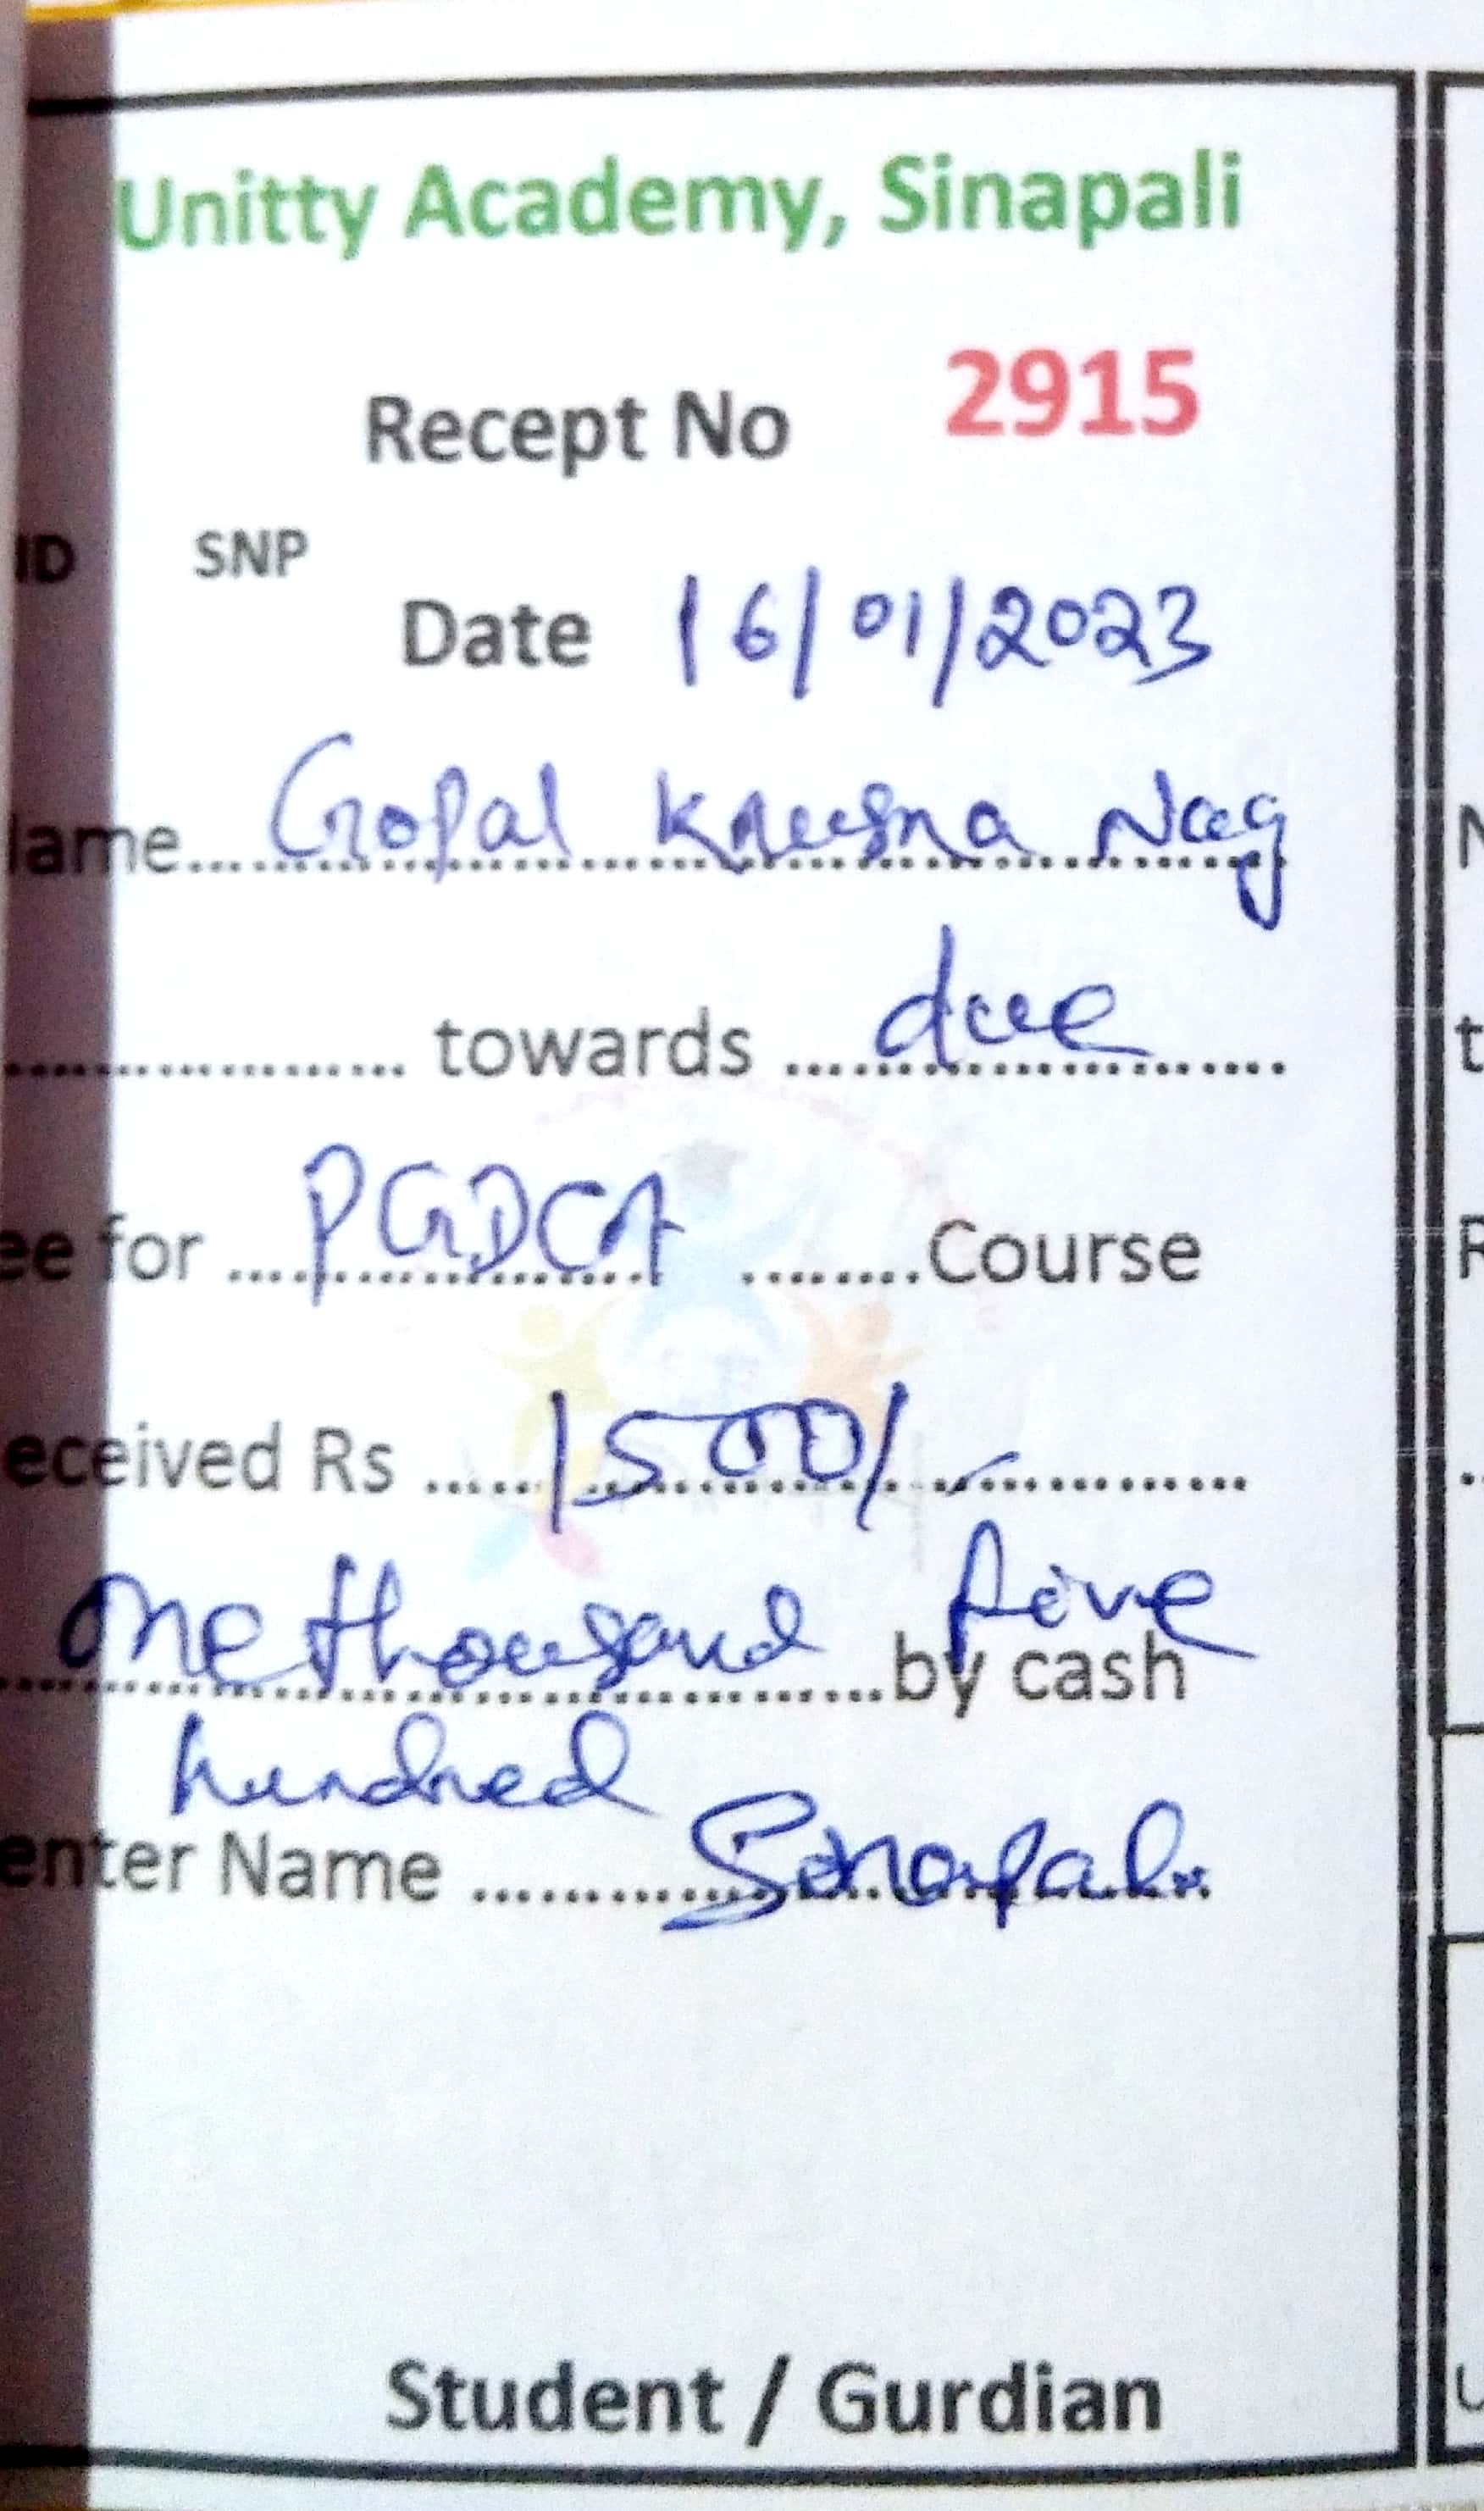 Unitty Academy, Sinapali
Recept No 2915
ID SNP
Date 16/01/2023
ame....Gopal Krusna Nag
.................. towards ....due....................
ee for ....PGDCA ........Course
eceived Rs ......1500/-................
One thousand five
..............................by cash
hundred
enter Name ............Sinapali
Student / Gurdian
N
t
R